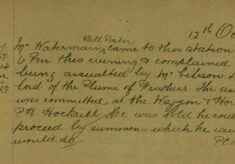 12th Oc
Bill Poster
Mr Waterman, came to this station
6 Pm this evening & complained
being assualted by Mr Gibson L
lord of the Plume of Feathers. The as
was committed at the Waggon & Hor
PH Hockerill. He was told he coul
proceed by summons which he said
would do.